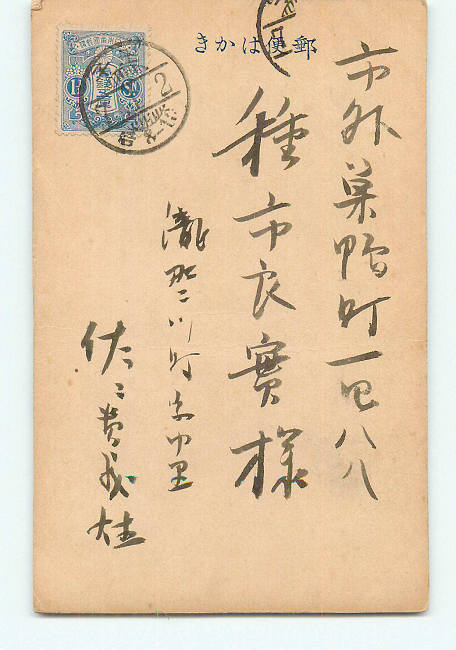 郵便はかき
市外巣鴨町一四八八
種市良實様
瀧野川町字中里
佐々
1½
Sn
2